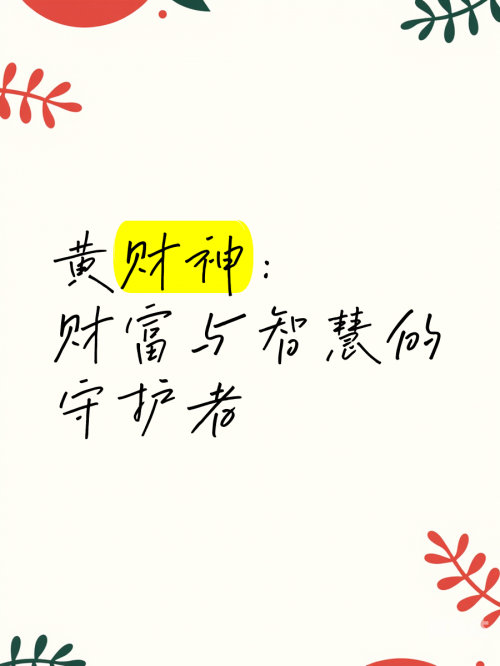 黄财神：
财富与智慧的
守护者